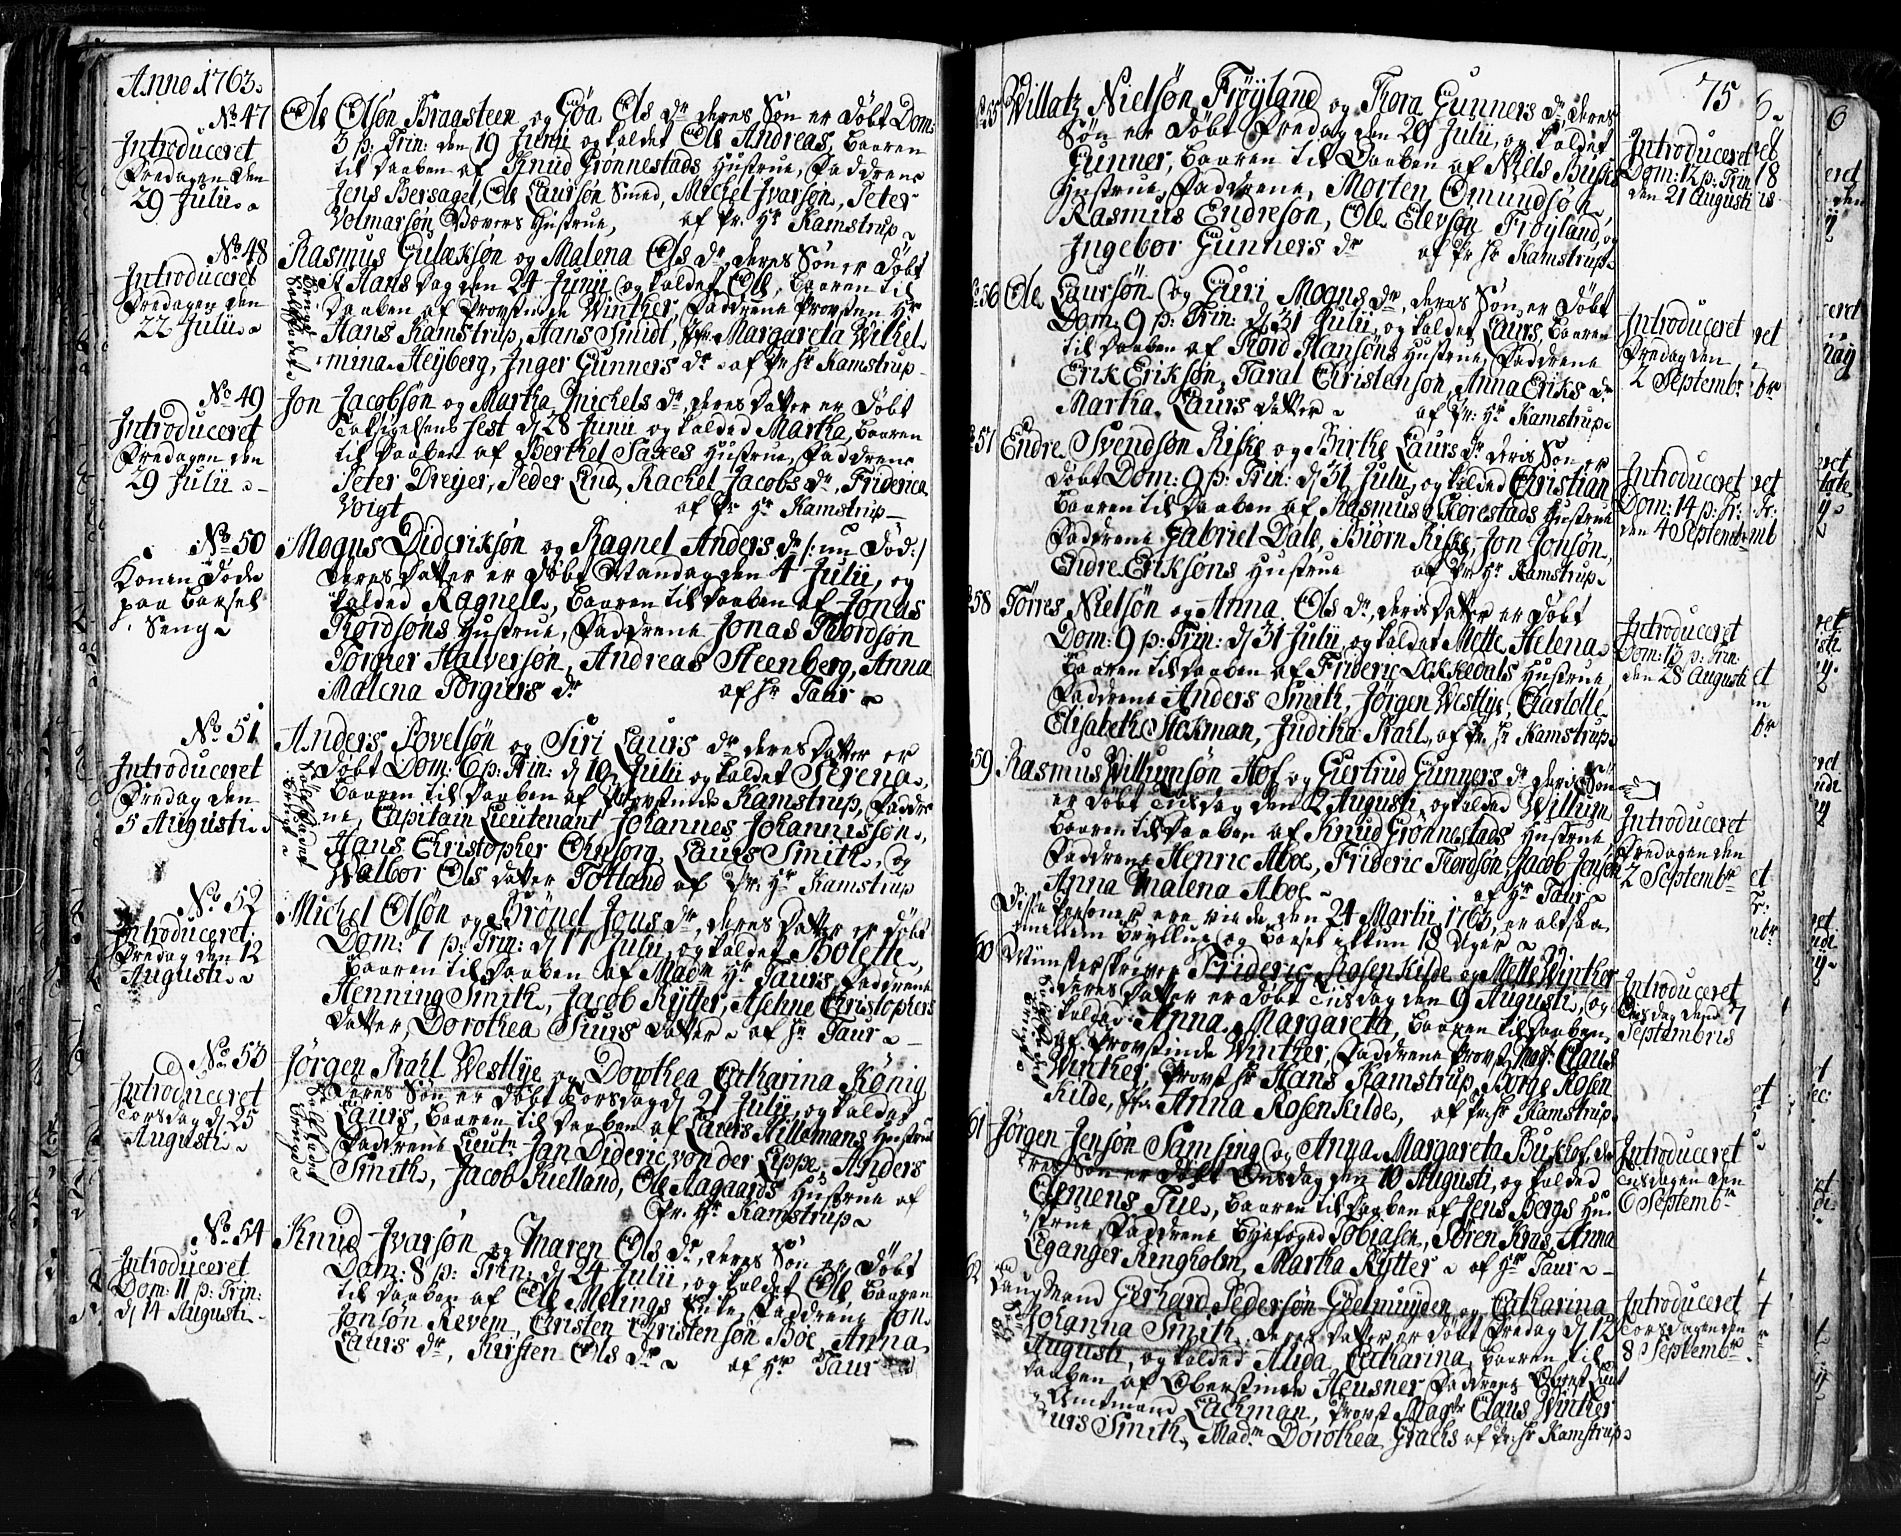 Anno 1763.
No 47
Introduceret
Fredagen den
29 Julii
Ole Olsøn Braasteen og Goa Ols dr deres Søn er døbt Dom:
3 p: Trin: den 19 Junii og kaldet Ole Andreas, baaren
til daaben af Knud Grønnestads Hustrue, Faddrene
Jens Bersagel, Ole Laursøn Smed, Michel Ivarsøn, Peter
Volmarsøn Hustrue, af Pr. Hr Kamstrup
No 48
Introduceret
Fredagen den
22 Julii
Rasmus Gulæksøn og Malena Ols dr, deres Søn er døbt
St Hans Dag den 24 Junii og kaldet Ole, baaren til
Daaben af Provstinde Winther, Faddrene Provsten Hr
Hans Kamstrup, Hans Smidt, Margareta Wilhel-
mina Heyberg, Inger Gunners dr af Pr Hr Kamstrup
No 49
Introduceret
Fredagen den
29 Julii
Jon Jacobsøn og Martha Michels dr, deres datter er døbt
fest d 28 Junii og kaldet Martha, baaren
til daaben af Berthel Saxes Hustrue, Faddrene
Peter Dreyer, Peder Lind, Rachel Jacobs dr, Friderica
Voigt af Pr Hr Kamstrup
No 50
Konen døde
paa Barsel
Seng
Mogns Dideriksøn og Ragnel Anders dr /: nu død :/
deres datter er døbt Mandag den 4 Julii, og
kaldet Ragnele, baaren til daaben af Jonas
Thordsøns Hustrue, Faddrene Jonas Thordsøn
Torgier Halversøn, Andreas Steenberg, Anna
Malena Torgiers dr af Hr Taur
No 51
Introduceret
Fredag den
5 Augusti
Anders Povelsøn og Siri Laurs dr deres datter er
døbt Dom: 6 p: Trin: d 10 Julii og kaldet Serena,
baaren til daaben af Provstinde Kamstrup, Faddre-
ne, Capitain Lieutenant Johannes Johannissøn,
Hans Christopher Ohnsorg, Laurs Smith, og
Walbor Ols datter Totland af Pr: Hr Kamstrup
No 52
Introduceret
Fredag den 12
Augusti
Michel Olsøn og Brønel Jons dr, deres datter er døbt
Dom: 7 p: Trin: d 17 Julii, og kaldet Bolette,
baaren til daaben af Madm Hr Taurs, Faddrene
Henning Smith, Jacob Rytter, Asehne Christophers
datter, Dorothea Siurs datter af Hr Taur
No 53
Introduceret
Torsdag d 25
Augusti
Jørgen Stahl Westlye og Dorothea Catharina König
deres Søn er døbt Torsdag d 21 Julii, og kaldet
Laurs, baaren til daaben af Laurs Hillemans Hustrue
Faddrene Lieutn Jan Dideric von der Lippe, Anders
Smith, Jacob Kielland, Ole Aagaards Hustrue af
Pr. Hr Kamstrup
No 54
Introduceret
Dom: 11 p: Trin:
d 14 Augusti
Knud Ivarsøn og Maren Ols dr, deres Søn er døbt
Dom: 8 p: Trin: d 24 Julii, og kaldet Ole baaren
til daaben af Ole Melings Enke, Faddrene Jon
Jonsøn Revem, Christen Christensøn Boe Anna
Laurs dr, Kirsten Ols dr af Hr Taur
75
No 55
Willatz Nielsøn Frøyland og Thora Gunners dr deres
Søn er døbt Fredag den 29 Julii, og kaldet
Gunner, baaren til Daaben af Niels
Hustrue, Faddrene, Morten Omundsøn,
Rasmus Endresøn, Ole Elevsøn Frøyland, og
Ingebor Gunners dr af Pr Hr Kamstrup
Introduceret
Dom: 12 p: Trin
den 21 Augusti
No 56
Ole Laursøn og Guri Mogns dr, deres Søn er døbt
Dom: 9 p: Trin: d 31 Julii, og kaldet Laurs, baaren
til daaben af Thord Hansøns Hustrue, Faddrene
Erik Eriksøn, Taral Christensøn, Anna Eriks dr
Martha Laurs datter af Pr: Hr Kamstrup
Introduceret
Fredag den
2 Septembr
57
Endre Svendsøn Riske og Birthe Laurs dr deris Søn er
døbt Dom: 9 p: Trin: d 31 Julii, og kaldet Christian
baaren til daaben af Rasmus Thorestads Hustrue
Faddrene Gabriel Dale, Biørn Riske, Jon Jonsøn,
Endre Eriksøns Hustrue af Pr Hr Kamstrup
Introduceret
Dom: 14 p: Tr:
den 4 Septembr
58
Tørres Nielsøn og Anna Ols dr, deris datter er døbt
Dom: 9 p: Trin: d 31 Julii, og kaldet Mette Helena,
baaren til daaben af Frideric Hustrue
Faddrene Anders Smith, Jørgen Westlye, Charlotte
Elisabeth Stokman, Juditha Stahl, af Pr: Hr Kamstrup
Introduceret
Dom: 13 p: Trin:
den 28 Augusti
59
Rasmus Willumsøn Hof og Giertrud Gunners dr deris Søn
er døbt Tiisdag den 2 Augusti, og kaldet Willum
baaren til daaben af Knud Grønnestads Hustrue
Faddrene Henric Aboe, Frideric Thordsøn, Jacob Jensøn
Anna Malena Aboe af Hr Taur
Disse Personer ere viede den 24 Martii 1763, er altsaa
imellem Bryllup og Barsel ikkun 18 Uger
Introduceret
Fredagen den
2 Septembr
60
Mynsterskriver Frideric Rosenkilde og Mette Winther
deres datter er døbt Tiisdag den 9 Augusti, og
kaldet Anna Margareta, baaren til daaben
af Provstinde Winther, Faddrene Provst Mag: Claus
Winther, Provst Hr Hans Kamstrup, Børge Rosen
Kilde, Anna Rosenkilde, af Pr: Hr Kamstrup
Introduceret
7
Septembris
61
Jørgen Jensøn Samsing og Anna Margareta de-
res Søn er døbt Onsdag den 10 Augusti, og kaldet
Clemens Tue, baaren til daaben af Jens Bergs Hu-
strue, Faddrene Byefoged Tobiasen, Søren Kras, Anna
Leganger Ringholm, Martha Rytter af Hr Taur
Introduceret
Tiisdagen den
6 Septembr
62
Laugmand Gerhard Pedersøn Geelmuyden og Catharina
Johanna Smith, deres datter er døbt Fredag d 12
Augusti, og kaldet Alida Catharina, baaren til
daaben af Oberstinde Heusner, Faddrene
Amtmand Lachman, Provst Magr Claus Winther
Laurs Smith, Madm Dorothea Grachs af Pr: Hr Kamstrup
Introduceret
Torsdagen den
8 Septembr